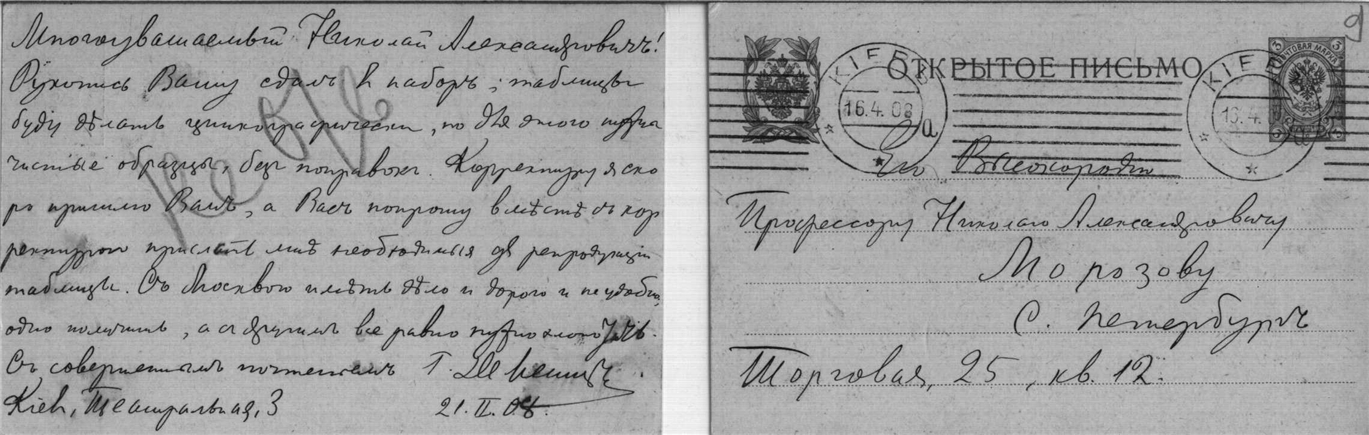 Многоуважаемый Николай Александровичъ!
Рукопись Вашу сдалъ въ наборъ; таблицы
буду дѣлать цинкографически, но для этого нужны
чистые образцы, безъ поправокъ. Корректуру я ско
ро пришлю Вамъ, а Васъ попрошу вмѣстѣ съ кор
ректурою прислать мнѣ необходимыя для репродукціи
таблицы. Съ Москвою имѣть дѣло и дорого и неудобно,
одно получишь, а съ другимъ все равно нужно
Съ совершеннымъ почтеніемъ Г.
Кіевъ, Театральная, 3 21.II.08.
9
ОТКРЫТОЕ ПИСЬМО
КІЕВЪ
16.4.08
а
КІЕВЪ
16.4.
3 ПОЧТОВАЯ МАРКА 3
Его Высокородію
Профессору Николаю Александровичу
Морозову
С. Петербургъ
Торговая, 25, кв. 12.